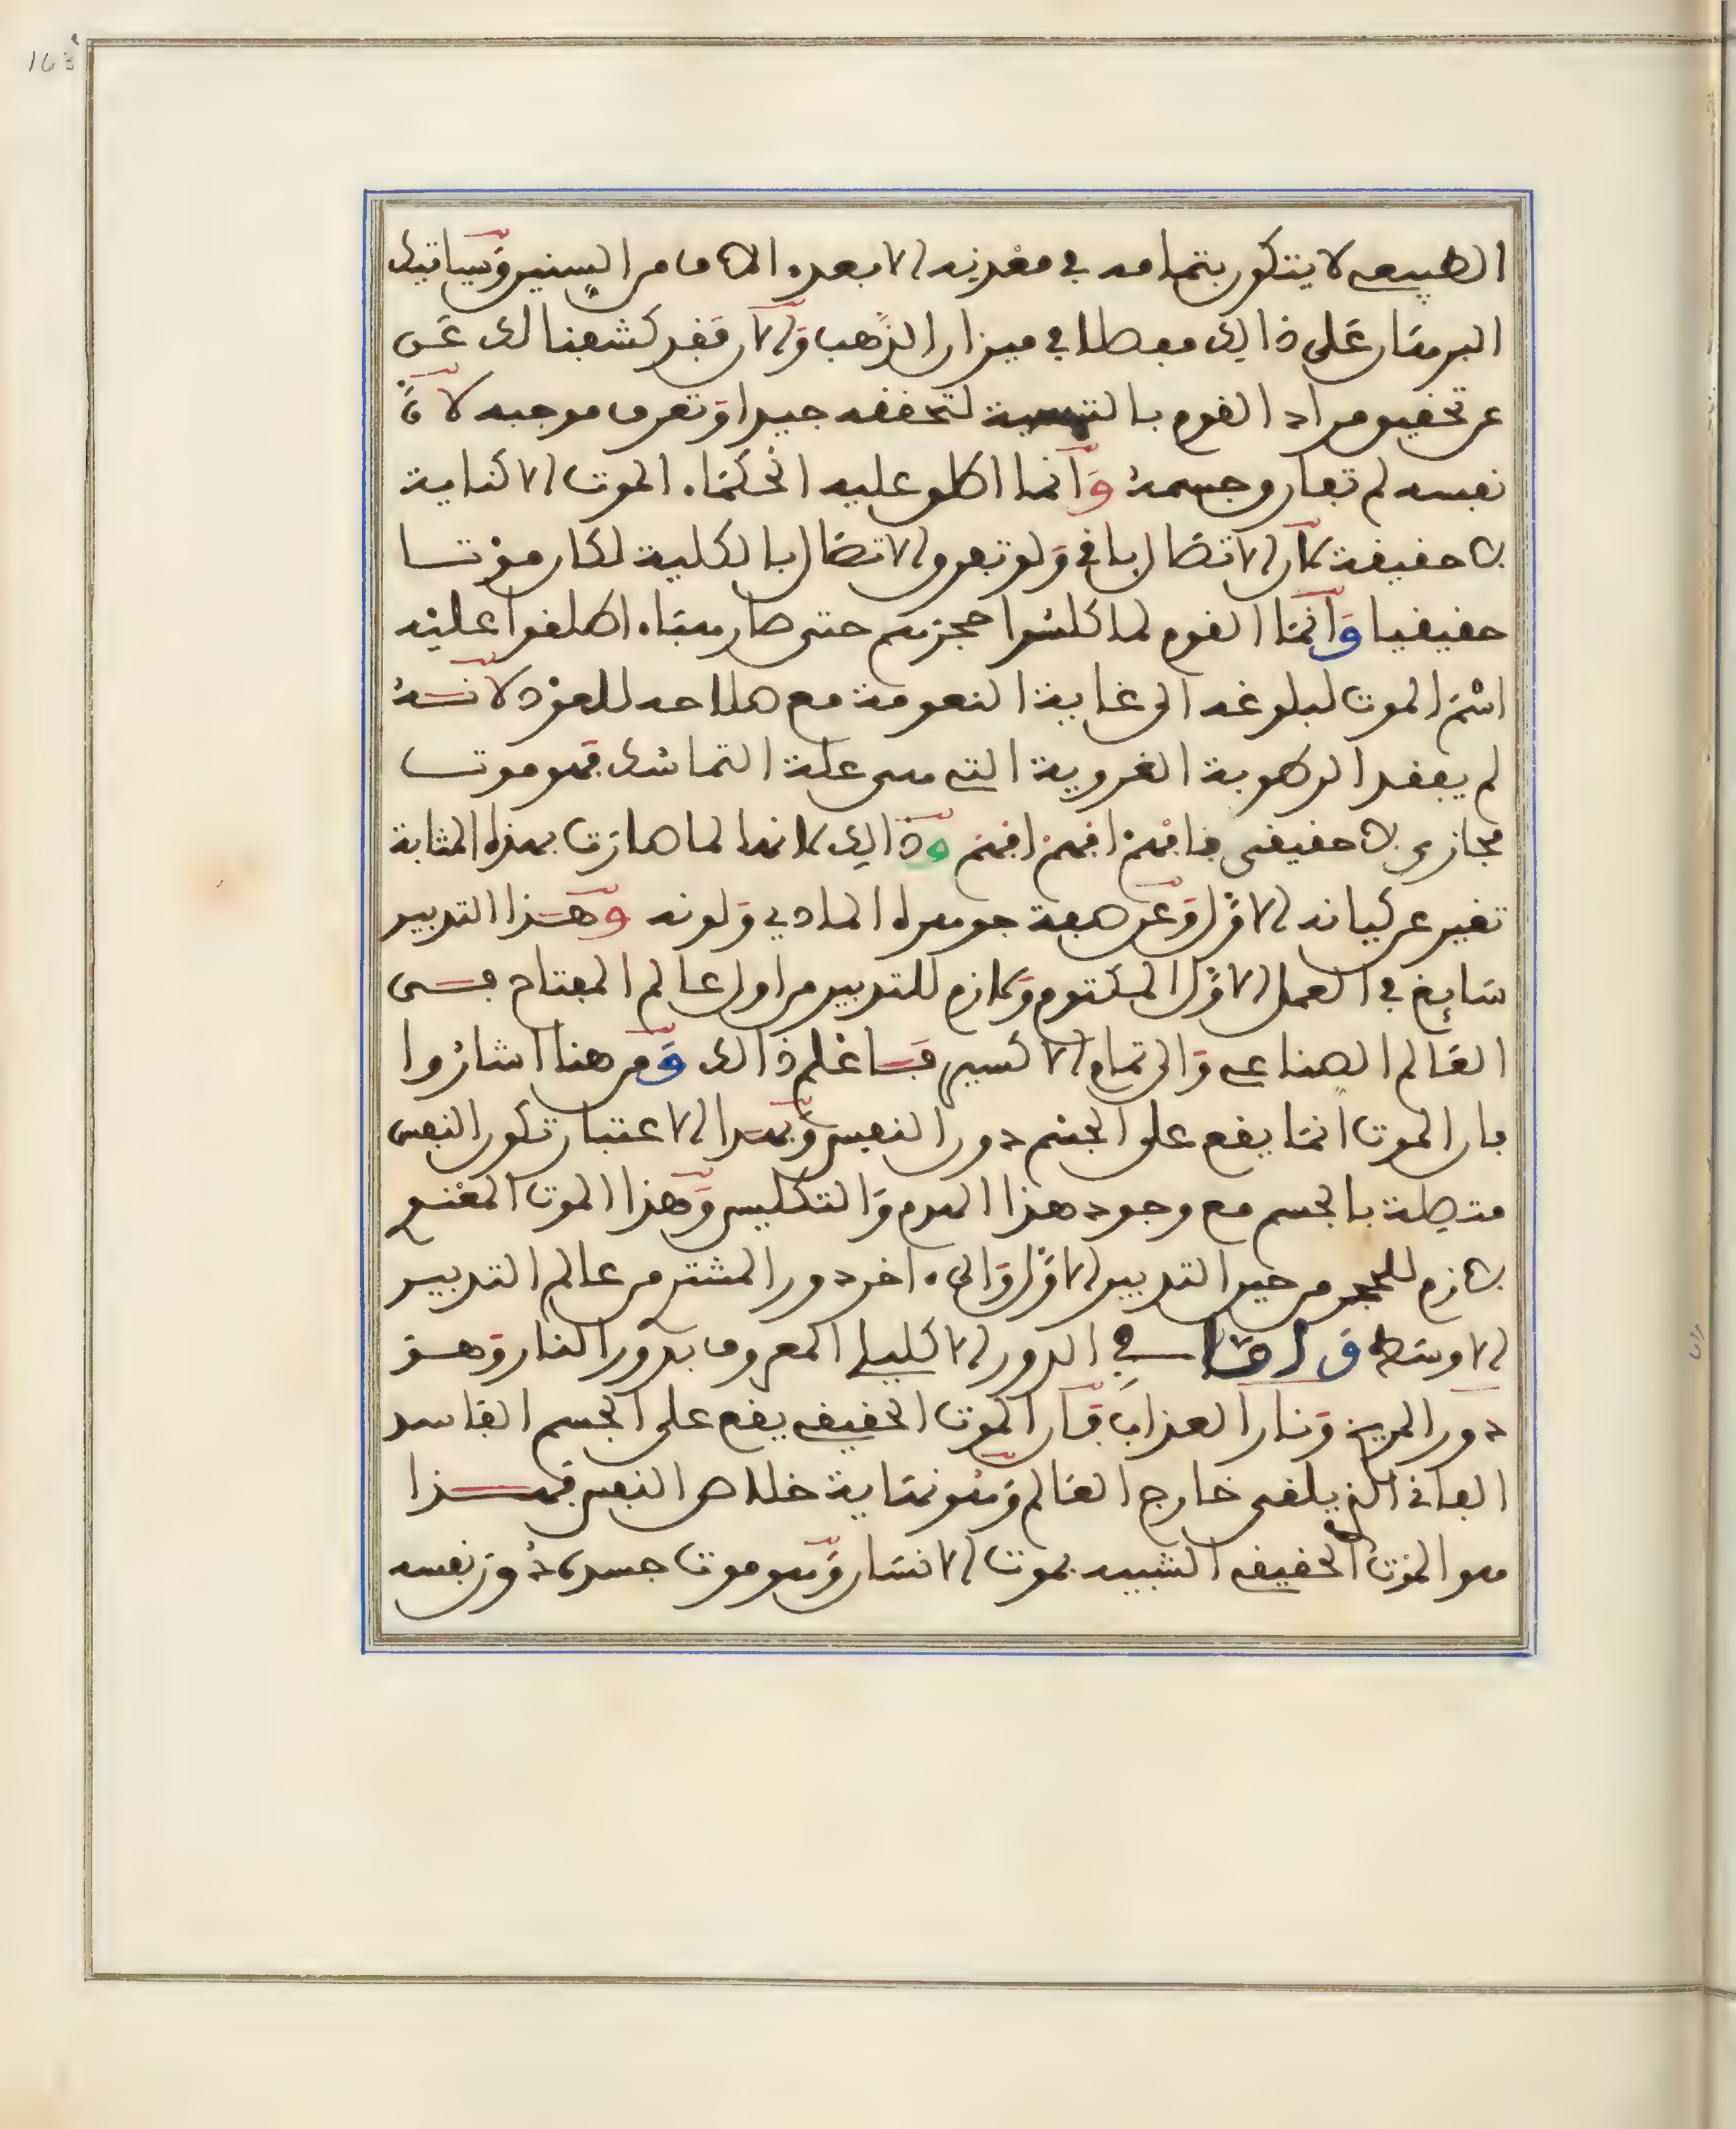 163
الطبيعي لا يتكون بتمامه في معدنه الا بعد الاف من السنين وسياتيك
البرهان على ذالك مفصلا في ميزان الذهب والان فقد كشفنا لك عن
عن تحقيق مراد القوم بالتسمية لتحققه جيدا وتعرف موجبه لان
نفسه لم تفارق جسمه وانما اطلق عليه الحكماء الموت الا كناية
لا حقيقة لان الاتصال باق ولو تفرق الاتصال بالكلية لكان موتا
حقيقيا وانما القوم لما كلسوا حجرهم حتى صار هباء اطلقوا عليه
اسم الموت لبلوغه الى غاية النعومة مع صلاحه للعود لانه
لم يفقد الرطوبة الغروية التي هي علة التماسك فهو موت
مجازي لا حقيقي فافهم افهم افهم وذالك لانه لما صارت بهذه المثابة
تغير عن كيانه الاول وعن صفة جوهره المادي ولونه وهذا التدبير
سايغ في العمل الاول المكتوم ولازم للتدبير من اول عالم المفتاح في
العالم الصناعي والى تمام الاكسير فاعلم ذالك ومن هنا اشاروا
بان الموت انما يقع على الجسم دون النفس وبهذا الاعتبار تكون النفس
متصلة بالجسم مع وجود هذا الهدم والتكليس وهذا الموت المقنع
لازم للحجر من حين التدبير الاول والى ءاخر دور المشتري من عالم التدبير
الاوسط واما في الدور الاكليلي المعروف بدور النار وهو
دور المريخ ونار العذاب فان الموت الحقيقي يقع على الجسم الفاسد
الفاني الذي يلقى خارج العالم وهو نهاية خلاص النفس فهذا
هو الموت الحقيقي الشبيه بموت الانسان وهو موت جسده دون نفسه